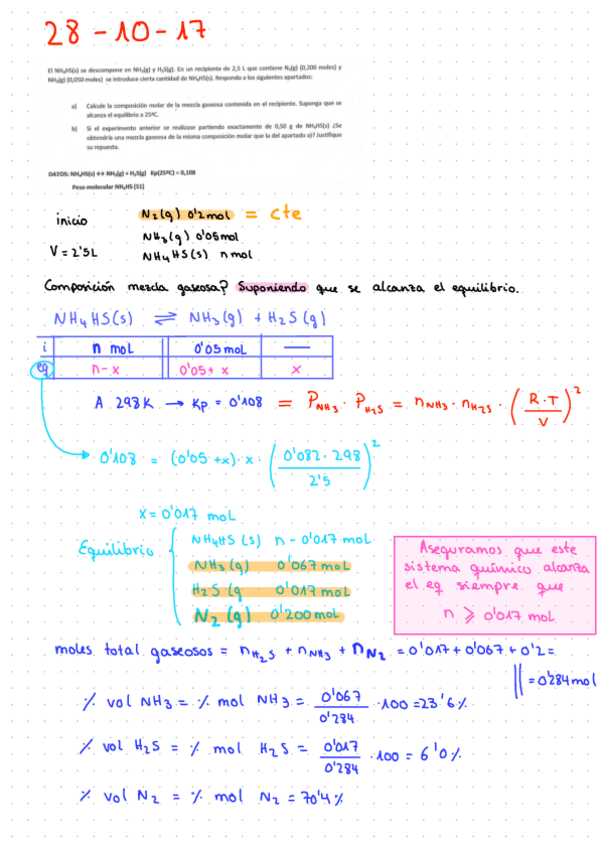 28-10-17
El NH₄HS(s) se descompone en NH₃(g) y H₂S(g). En un recipiente de 2,5 L que contiene N₂(g) (0,200 moles) y
NH₃(g) (0,050 moles) se introduce cierta cantidad de NH₄HS(s). Responda a los siguientes apartados:
a) Calcule la composición molar de la mezcla gaseosa contenida en el recipiente. Suponga que se
alcanza el equilibrio a 25ºC.
b) Si el experimento anterior se realizase partiendo exactamente de 0,50 g de NH₄HS(s) ¿Se
obtendría una mezcla gaseosa de la misma composición molar que la del apartado a)? Justifique
su repuesta.
DATOS: NH₄HS(s) ↔ NH₃(g) + H₂S(g) Kp(25ºC) = 0,108
Peso molecular NH₄HS (51)
inicio N₂(g) 0'2mol = cte
NH₃(g) 0'05mol
V = 2'5L NH₄HS(s) n mol
Composición mezcla gaseosa? Suponiendo que se alcanza el equilibrio.
NH₄HS(s) ⇌ NH₃(g) + H₂S(g)
i n mol 0'05mol —
eq n-x 0'05+x x
A 298K → Kp = 0'108 = P_NH₃ · P_H₂S = n_NH₃ · n_H₂S · (R·T/V)²
0'108 = (0'05+x)·x·(0'082·298/2'5)²
x = 0'017 mol
Equilibrio { NH₄HS(s) n-0'017 mol
NH₃(g) 0'067 mol
H₂S(g 0'017 mol
N₂(g) 0'200 mol
Aseguramos que este
sistema químico alcanza
el eq siempre que
n ⩾ 0'017 mol
moles total gaseosos = n_H₂S + n_NH₃ + n_N₂ = 0'017 + 0'067 + 0'2 =
= 0'284mol
% vol NH₃ = % mol NH₃ = 0'067/0'284 · 100 = 23'6%
% vol H₂S = % mol H₂S = 0'017/0'284 · 100 = 6'0%
% vol N₂ = % mol N₂ = 70'4%